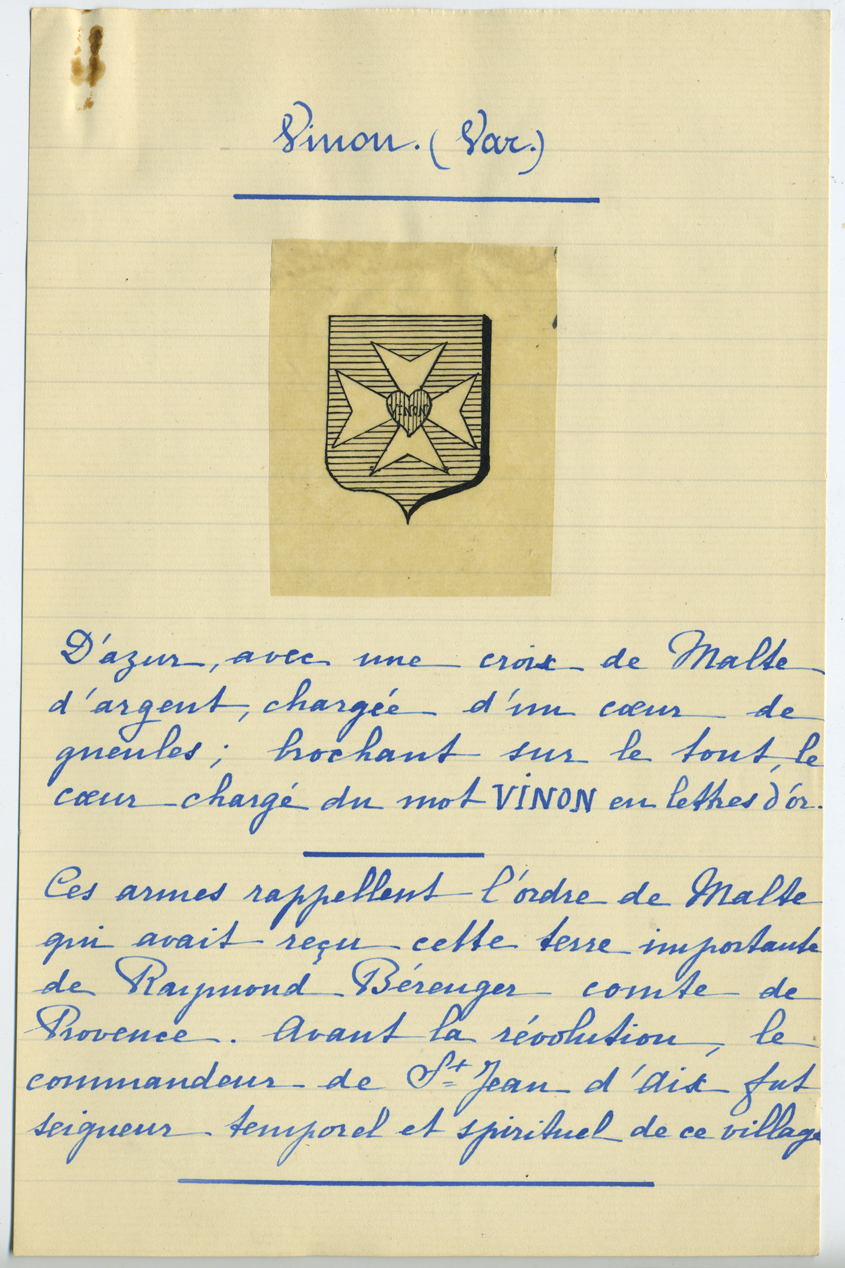 Vinon. (Var.)
VINON
D'azur, avec une croix de Malte
d'argent, chargée d'un cœur de
gueules ; brochant sur le tout, le
cœur chargé du mot VINON en lettres d'or.
Ces armes rappellent l'ordre de Malte
qui avait reçu cette terre importante
de Raymond Bérenger comte de
Provence. Avant la révolution, le
commandeur de St Jean d'Aix fut
seigneur temporel et spirituel de ce village